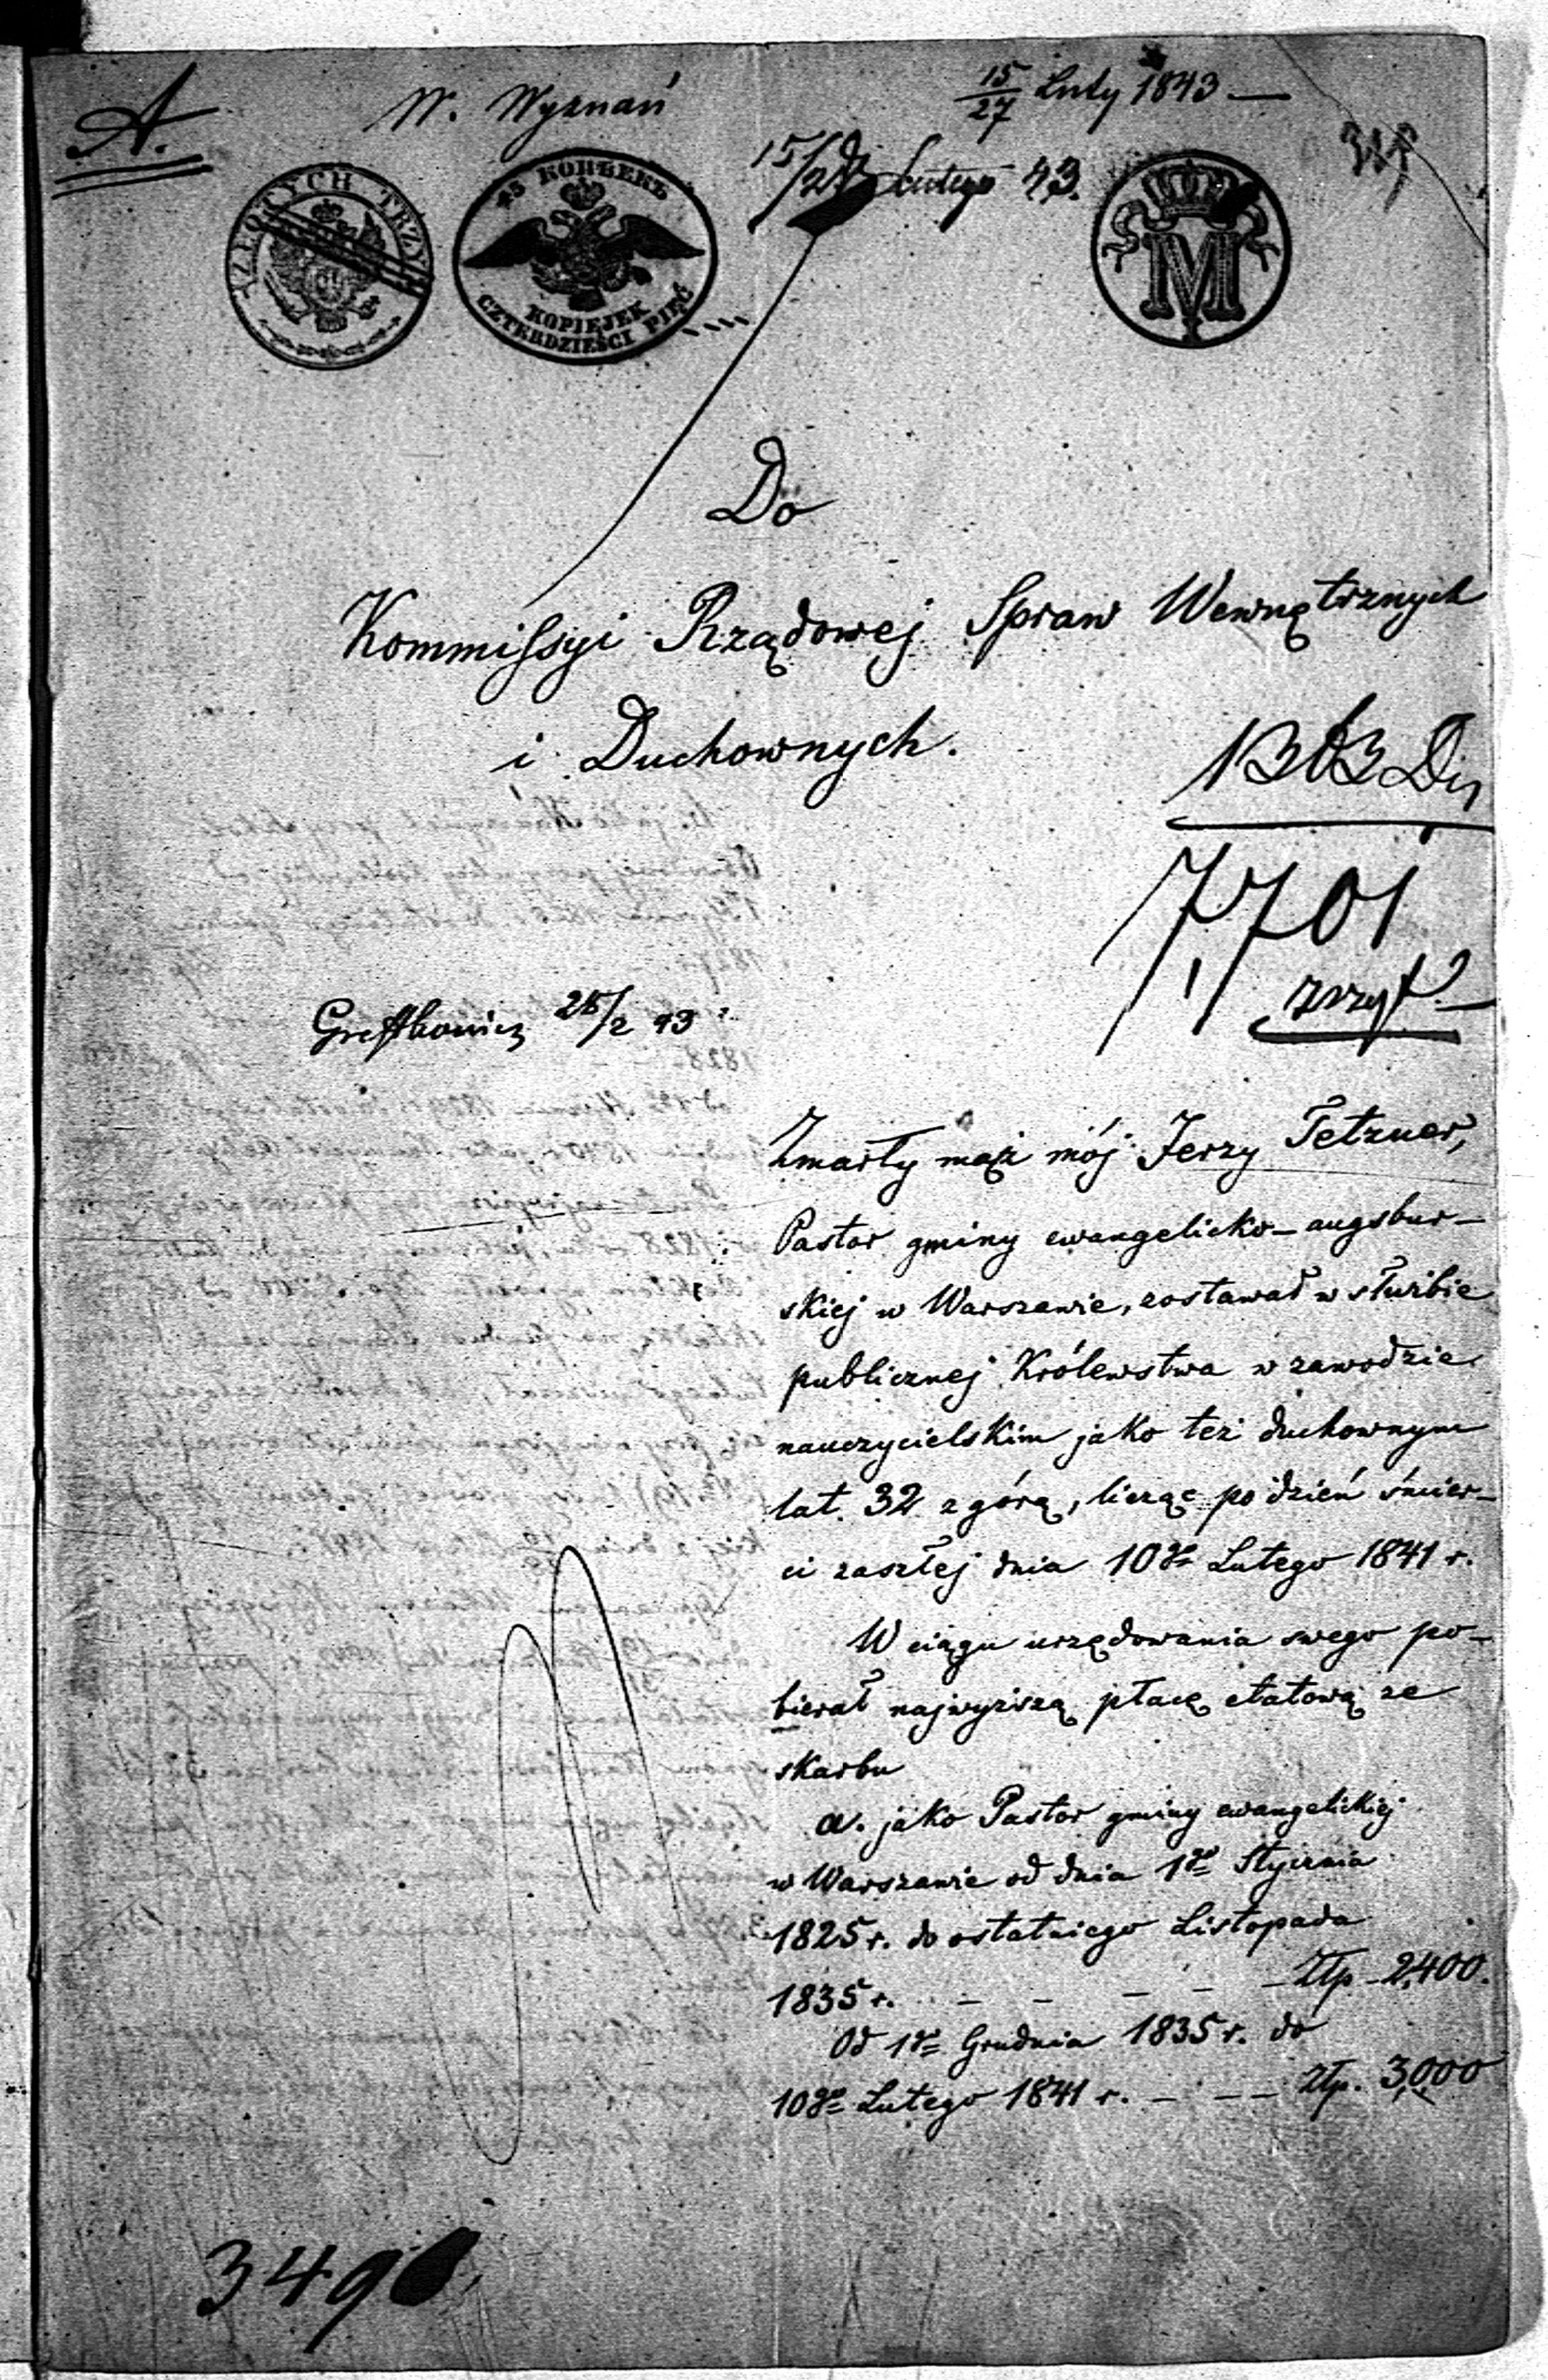 A.
W. Wyznań
15/27 Luty 1843 —
15/27 Lutego 43.
ZŁOTYCH TRZY
45 КОПѢЕКЪ
KOPIEJEK
CZTERDZIEŚCI PIĘĆ
M
Do
Kommissyi Rządowej Spraw Wewnętrznych
i Duchownych.
7701
25/2 43
Zmarły mąż mój Jerzy Tetzner,
Pastor gminy ewangelicko-augsbur-
skiej w Warszawie, zostawał w służbie
publicznej Królewstwa w zawodzie
nauczycielskim jako też duchownym
lat 32 z górą, licząc po dzień śmier-
ci zaszłej dnia 10go Lutego 1841 r.
W ciągu urzędowania swego po-
bierał najwyższą płacę etatową ze
skarbu
a. jako Pastor gminy ewangelickiej
w Warszawie od dnia 1go Stycznia
1825 r. do ostatniego Listopada
1835 r. — — — — Ztp. 2,400.
Od 1go Grudnia 1835 r. do
10go Lutego 1841 r. — — — Ztp. 3,000
349